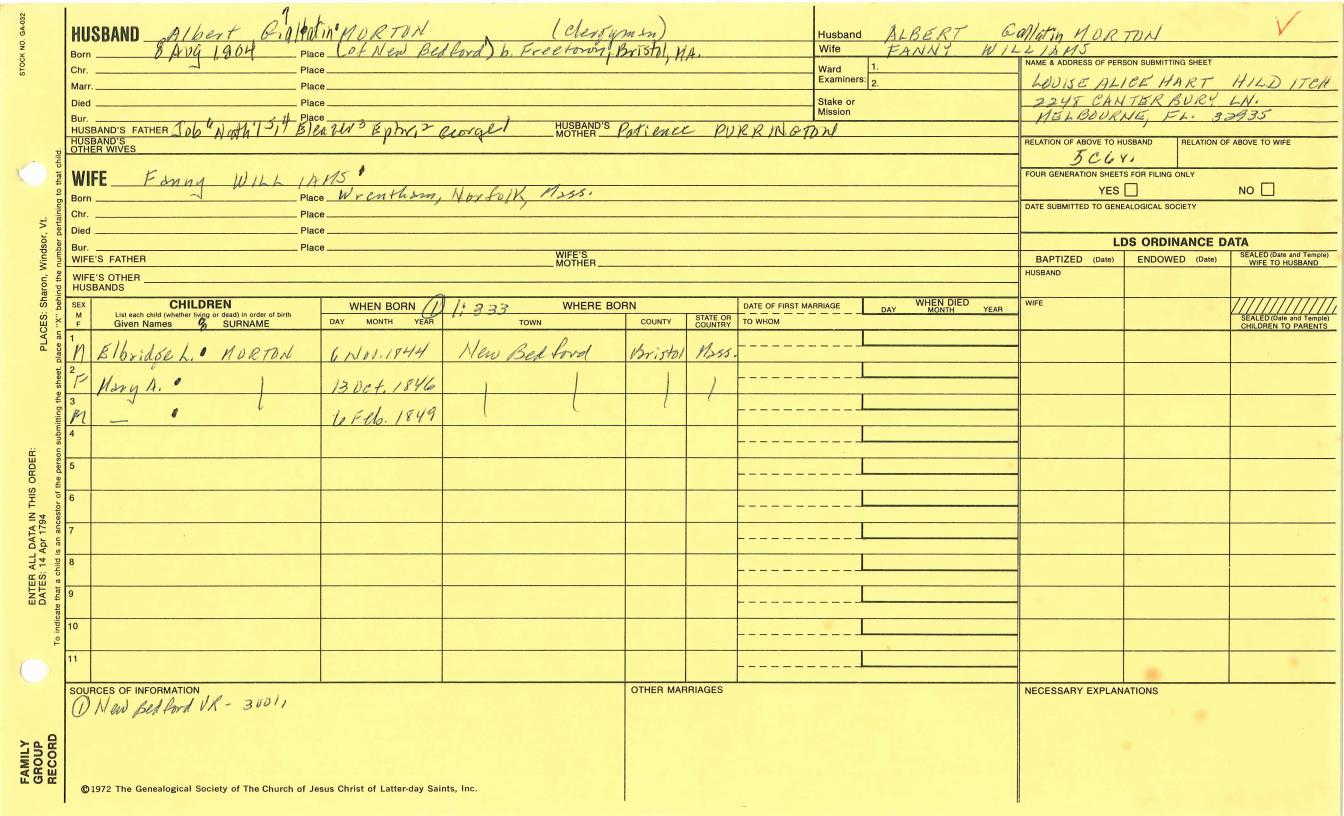 STOCK NO. GA-032
HUSBAND Albert Gallatin MORTON (clergyman)
Born 8 Aug 1804 Place (of New Bedford) b. Freetown, Bristol, MA.
Chr. Place
Marr. Place
Died Place
Bur. Place
HUSBAND'S FATHER Job "North" 5,4 Eleazer3 Ephr.2 George1 HUSBAND'S MOTHER Patience PURRINGTON
HUSBAND'S OTHER WIVES
Husband ALBERT Gallatin MORTON
Wife FANNY WILLIAMS
Ward Examiners: 1.
2.
Stake or Mission
NAME & ADDRESS OF PERSON SUBMITTING SHEET
LOUISE ALICE HART HILD ITCH
2248 CANTERBURY LN.
MELBOURNE, FL. 32935
RELATION OF ABOVE TO HUSBAND RELATION OF ABOVE TO WIFE
5C6r.
FOUR GENERATION SHEETS FOR FILING ONLY
YES NO
DATE SUBMITTED TO GENEALOGICAL SOCIETY
WIFE Fanny WILLIAMS
Born Place Wrentham, Norfolk, Mass.
Chr. Place
Died Place
Bur. Place
WIFE'S FATHER WIFE'S MOTHER
WIFE'S OTHER HUSBANDS
LDS ORDINANCE DATA
BAPTIZED (Date) ENDOWED (Date) SEALED (Date and Temple) WIFE TO HUSBAND
HUSBAND
WIFE
SEALED (Date and Temple) CHILDREN TO PARENTS
SEX M F
CHILDREN
List each child (whether living or dead) in order of birth
Given Names SURNAME
WHEN BORN ① 1:333 WHERE BORN
DAY MONTH YEAR TOWN COUNTY STATE OR COUNTRY
DATE OF FIRST MARRIAGE
TO WHOM
WHEN DIED
DAY MONTH YEAR
1 M Elbridge L. MORTON 6 Nov. 1844 New Bedford Bristol Mass.
2 F Mary A. 13 Oct. 1846
3 M — 6 Feb. 1849
4
5
6
7
8
9
10
11
SOURCES OF INFORMATION
① New Bedford VR -
OTHER MARRIAGES
NECESSARY EXPLANATIONS
©1972 The Genealogical Society of The Church of Jesus Christ of Latter-day Saints, Inc.
FAMILY GROUP RECORD
ENTER ALL DATA IN THIS ORDER:
DATES: 14 Apr 1794
PLACES: Sharon, Windsor, Vt.
To indicate that a child is an ancestor of the person submitting the sheet, place an "X" behind the number pertaining to that child.